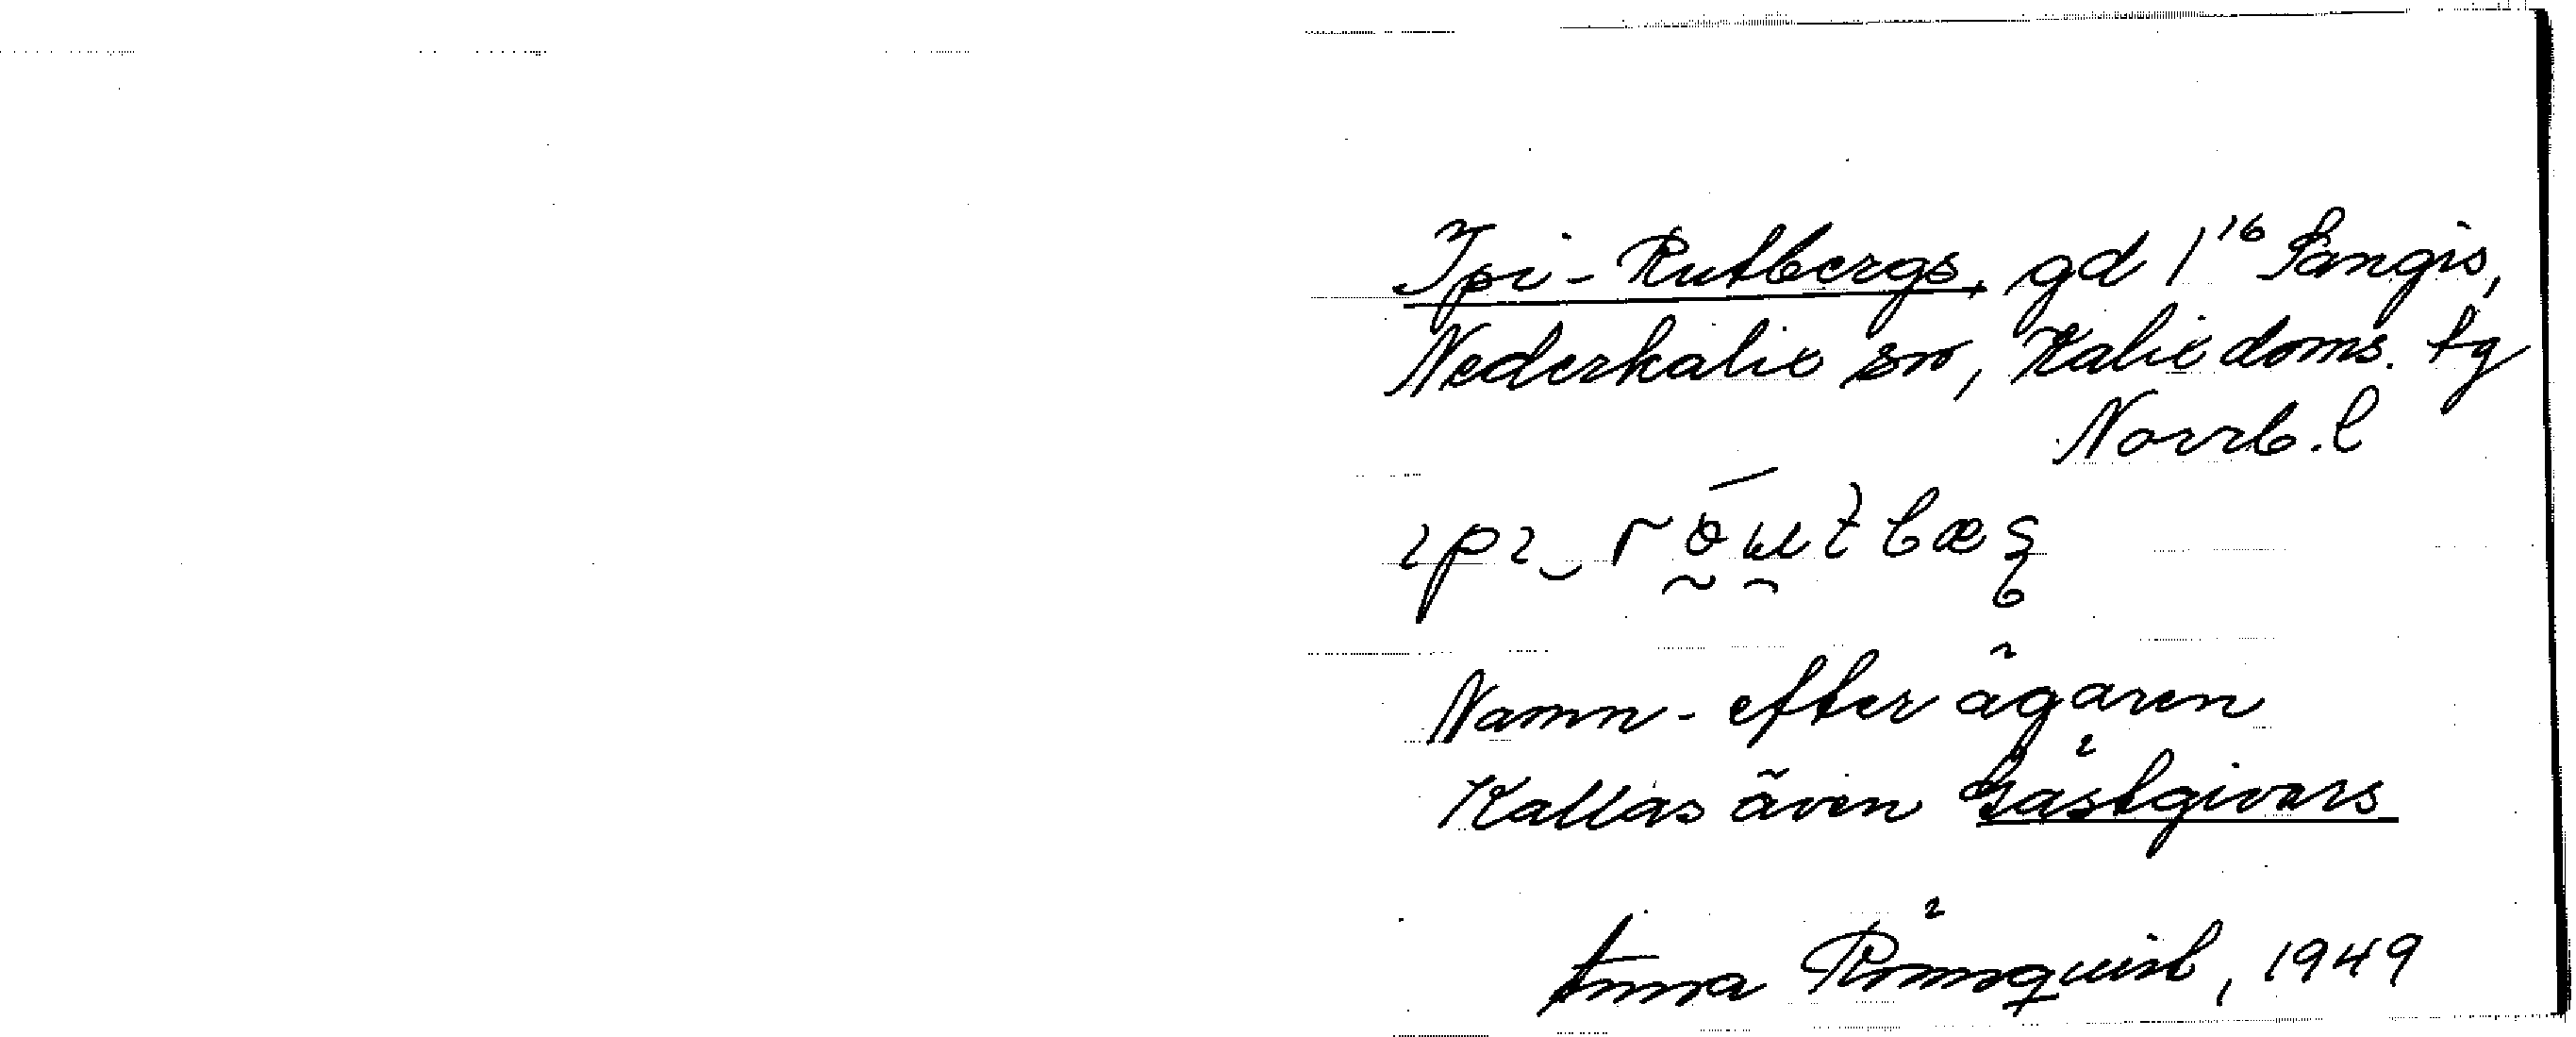 Ipi-Rutbergs, gd 1¹⁶ Sangis,
Nederkalix sn, Kalix doms. tg
Norrb. l
Namn efter ägaren
Kallas även Gästgivars
Anna Rönnquist, 1949